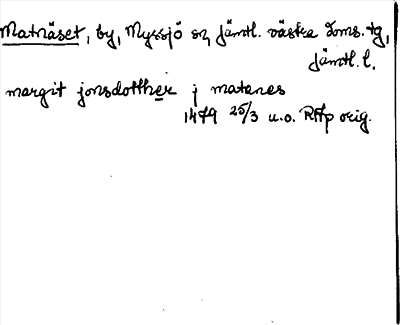 Matnäset, by, Myssjö sn, Jämtl. västra doms. tg,
Jämtl. l.
margit jonsdotther j matanes
1479 25/3 u.o. RAp orig.